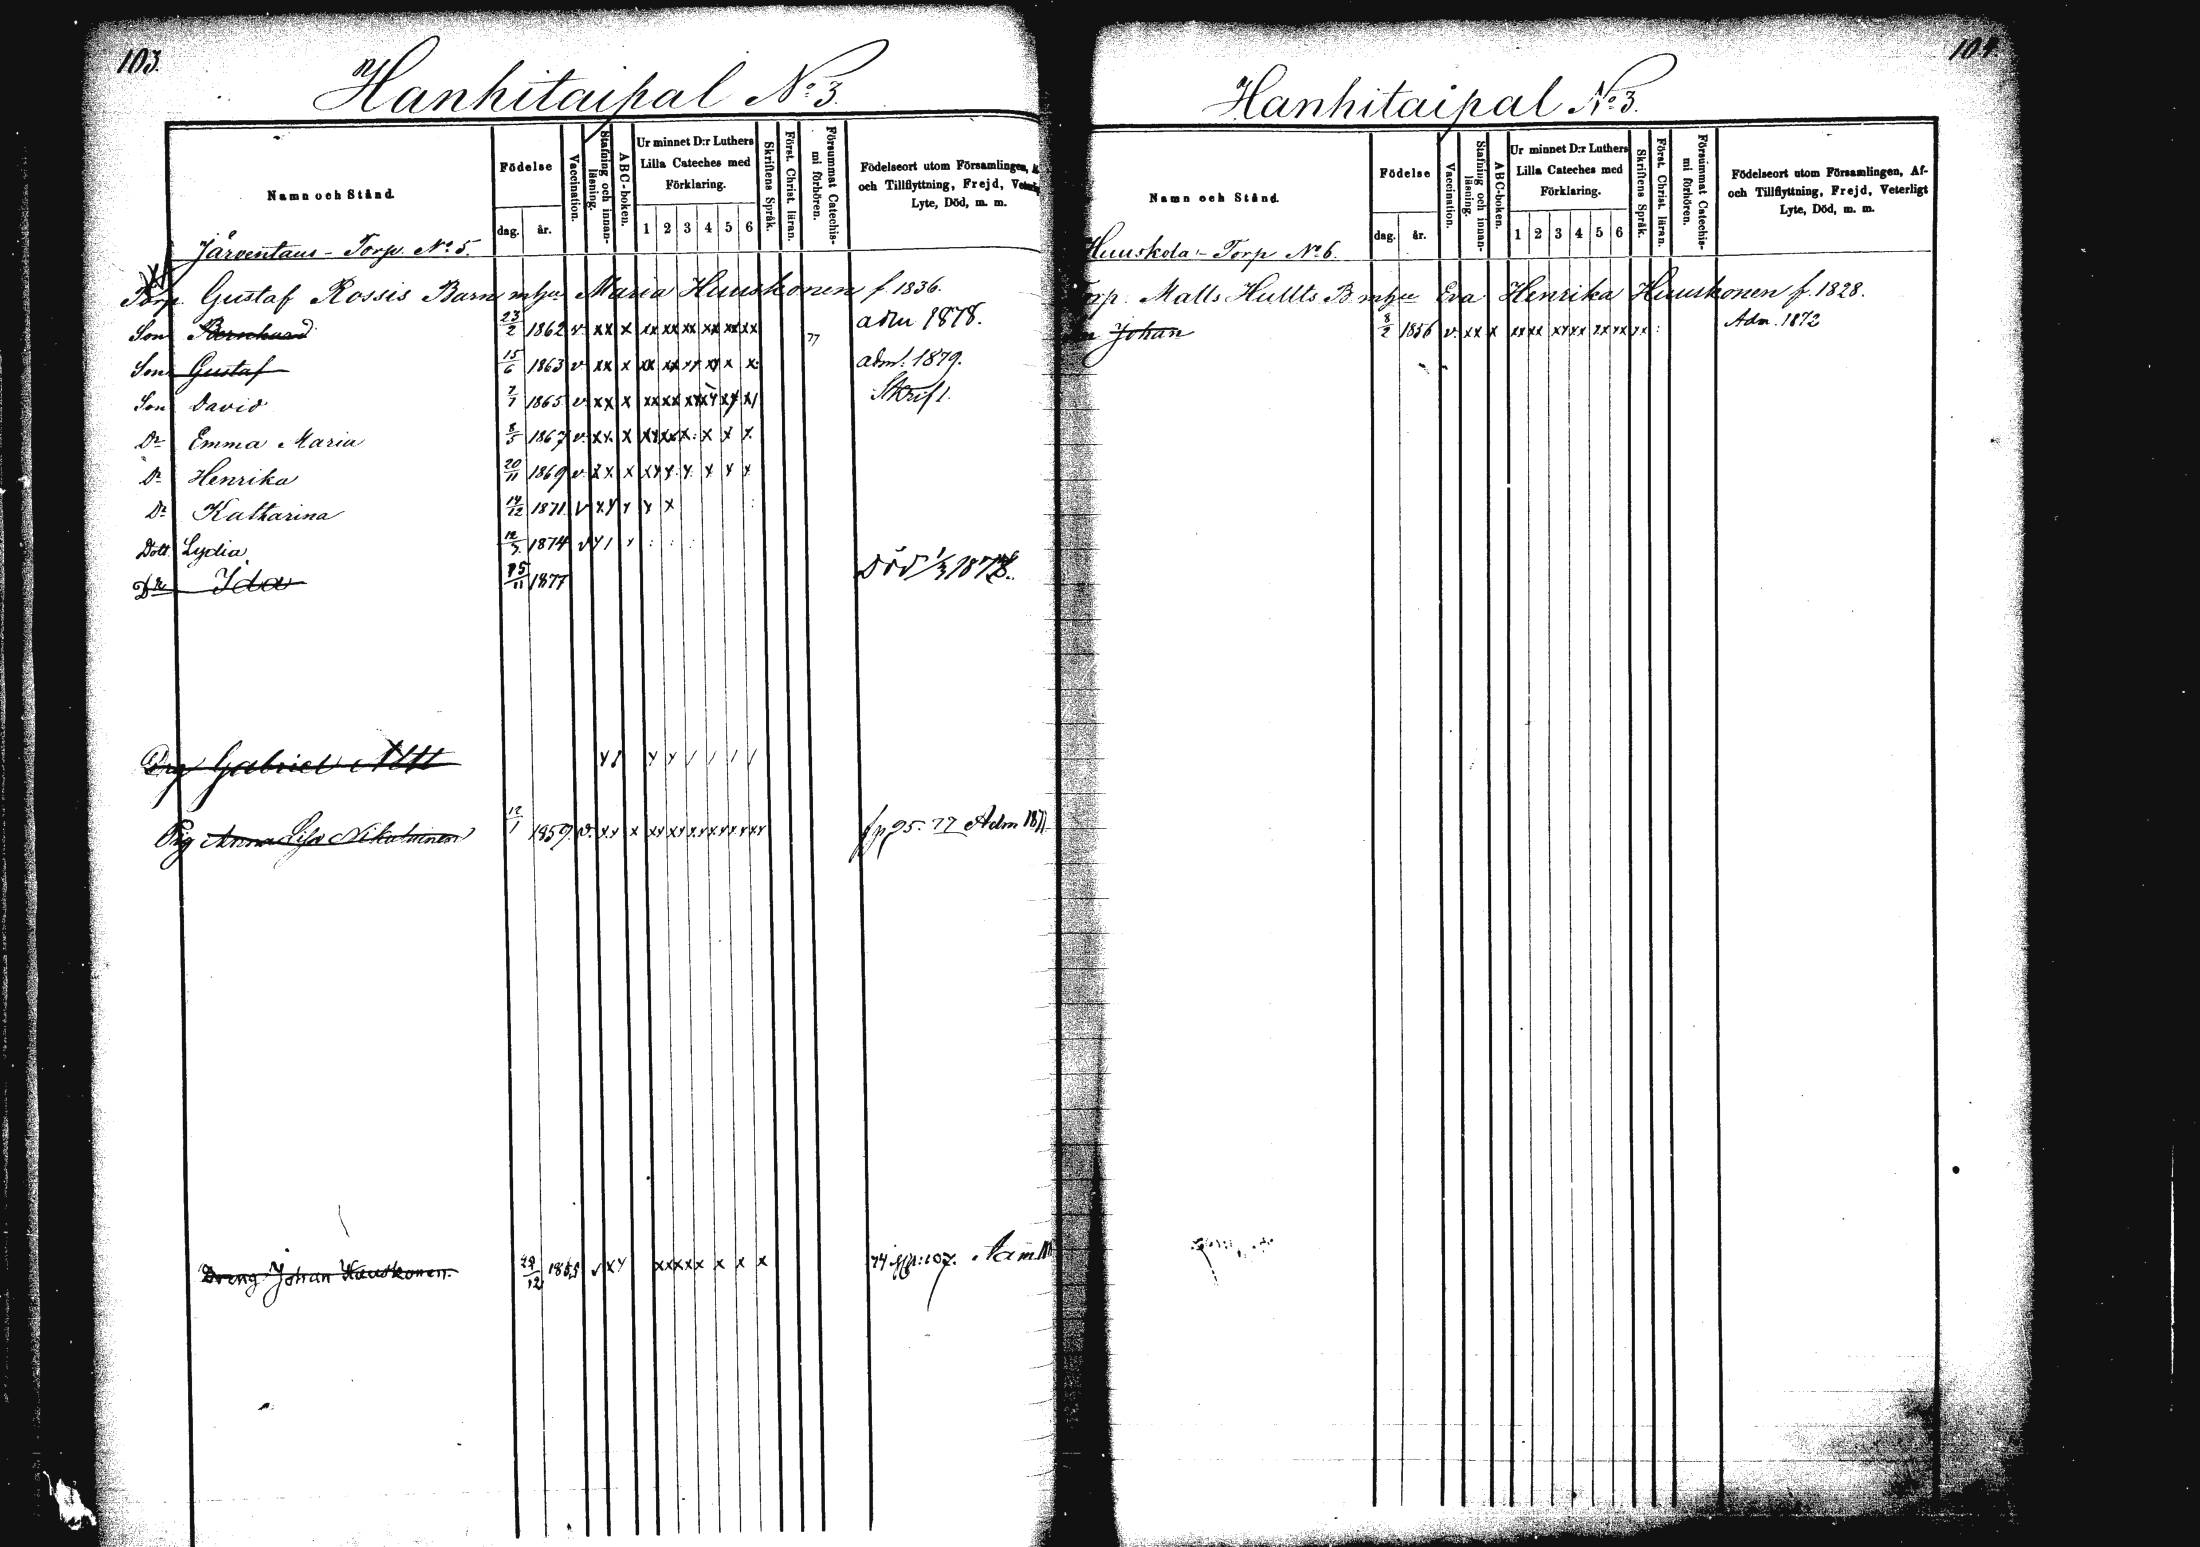 103.
Hanhitaipal No 3.
Namn och Stånd.
Födelse
dag. år.
Vaccination.
Stafning och innan-
läsning.
ABC-boken.
Ur minnet D:r Luthers
Lilla Cateches med
Förklaring.
1 2 3 4 5 6
Skriftens Språk.
Först. Christ. läran.
Försummat Catechis-
mi förhören.
Födelseort utom Församlingen,
och Tillflyttning, Frejd,
Lyte, Död, m. m.
Järventaus - Torp. No 5.
Torp. Gustaf Rossis Barn mhu Maria Huuskonen f. 1836.
Son Bernhard 23/2 1862 v xx x xx xx xx xx xx xx 77 adm 1878.
Son Gustaf 15/6 1863 v xx x xx xx xx xx x x: adm. 1879.
Son David 7/7 1865 v xx x Skrift.
Dr Emma Maria 8/5 1867 v xx x
Dr Henrika 20/11 1869 v xx x
Dr Katharina 14/12 1871 v x x
Dott Lydia 1874 v
Dr Ida 1877 Död 1/3 1878.
Drg Gabriel
Pig Anna Lisa Nikulainen 12/1 1859. v. fp 95. 77 Adm 187
Dreng Johan Huuskonen. 1855 74 107.
104.
Hanhitaipal No 3.
Namn och Stånd.
Födelse
dag. år.
Vaccination.
Stafning och innan-
läsning.
ABC-boken.
Ur minnet D:r Luthers
Lilla Cateches med
Förklaring.
1 2 3 4 5 6
Skriftens Språk.
Först. Christ. läran.
Försummat Catechis-
mi förhören.
Födelseort utom Församlingen, Af-
och Tillflyttning, Frejd, Veterligt
Lyte, Död, m. m.
Huuskola - Torp No 6.
Torp. Matts Hultts B mhu Eva Henrika Huuskonen f. 1828.
Johan 8/2 1856 v. xx x Adm. 1872